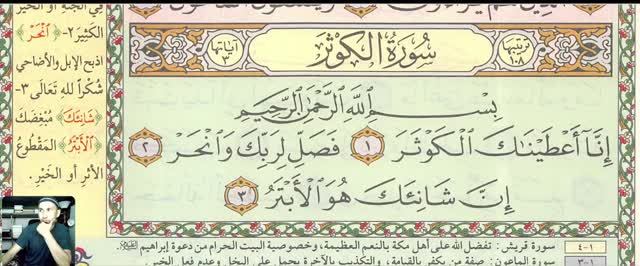 ترتيبها ١٠٨
سُورَةُ الْكَوْثَرِ
آياتها ٣
بِسْمِ اللَّهِ الرَّحْمَٰنِ الرَّحِيمِ
إِنَّا أَعْطَيْنَاكَ الْكَوْثَرَ ١ فَصَلِّ لِرَبِّكَ وَانْحَرْ ٢
إِنَّ شَانِئَكَ هُوَ الْأَبْتَرُ ٣
في الجنة أو الخير
الكثير ٢- ﴿انْحَرْ﴾
اذبح الإبل والأضاحي
شُكْراً لله تَعَالَى ٣-
﴿شَانِئَكَ﴾ مُبْغِضَكَ
﴿الْأَبْتَرُ﴾ المَقْطُوعُ
الأثرِ أو الخَيْرِ.
١-٤ سورة قريش: تفضل الله على أهل مكة بالنعم العظيمة، وخصوصية البيت الحرام من دعوة إبراهيم
١-٣ سورة الماعون: صفة من يكفر بالقيامة، والتكذيب بالآخرة يحمل على البخل وعدم فعل الخير